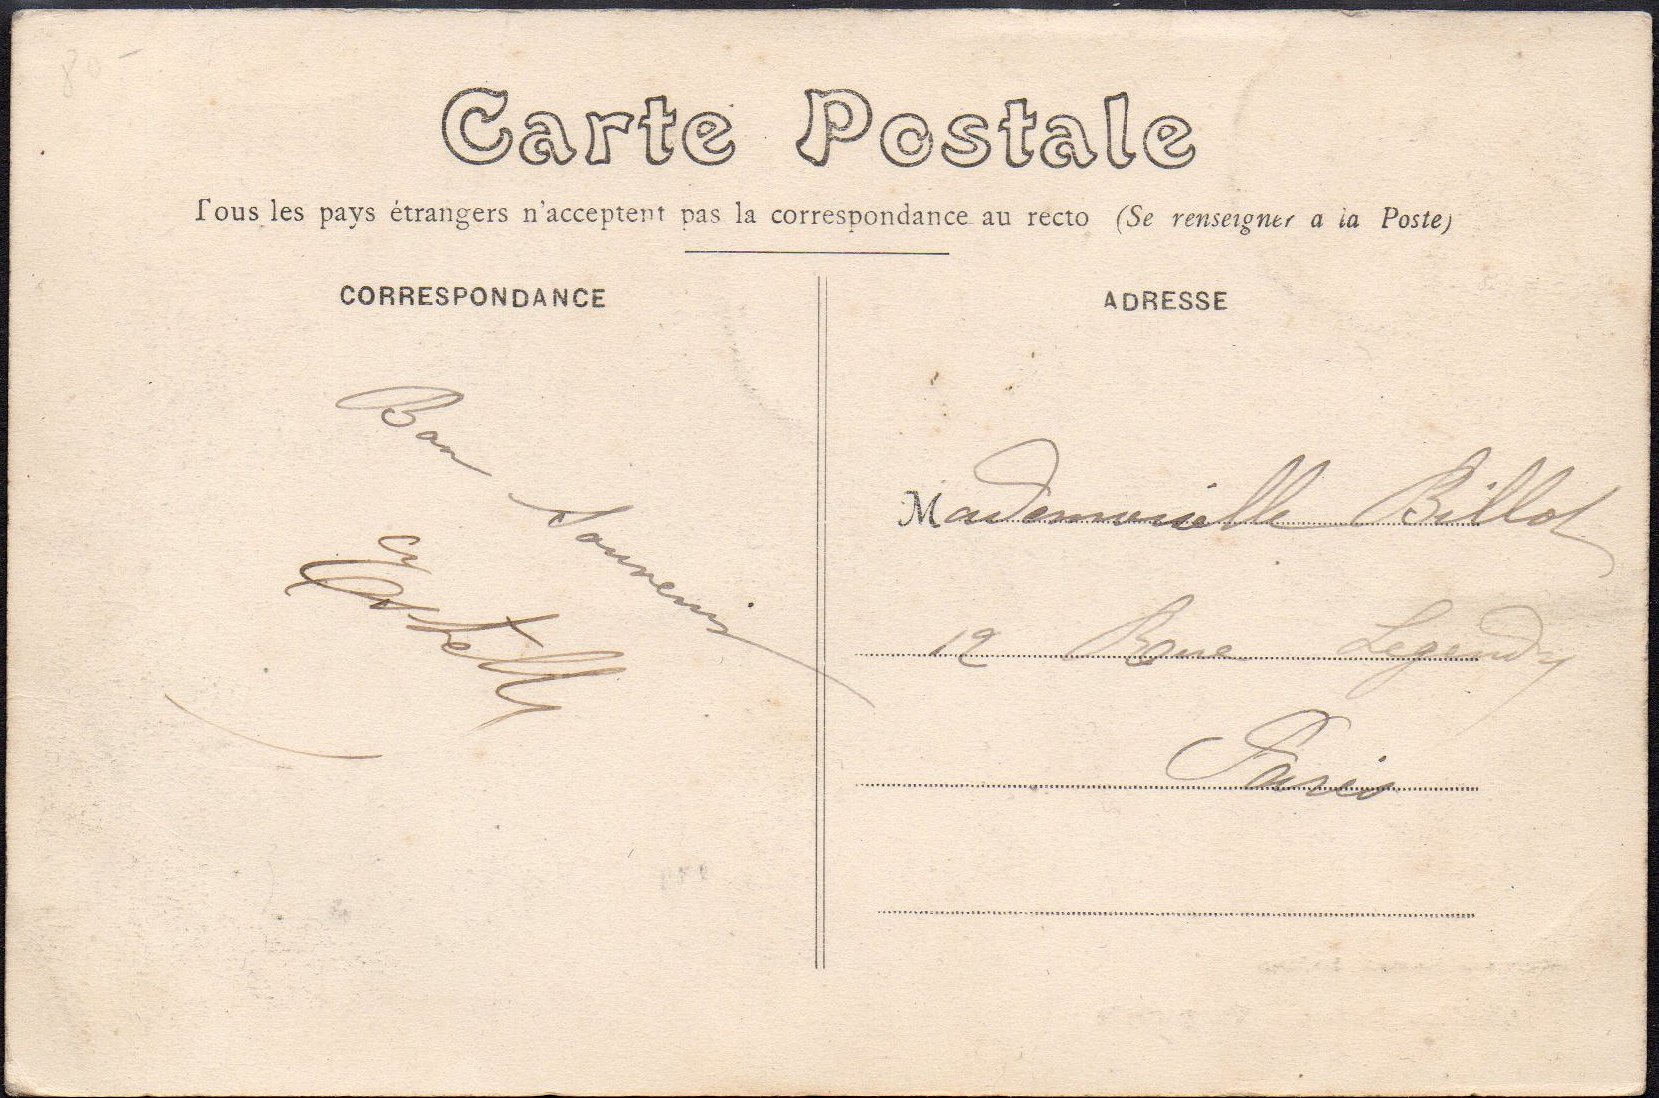 80-
Carte Postale
Tous les pays étrangers n'acceptent pas la correspondance au recto (Se renseigner a la Poste)
CORRESPONDANCE
Bon Souvenir
ADRESSE
Mademoiselle Billot
12 Rue Legendre
Paris